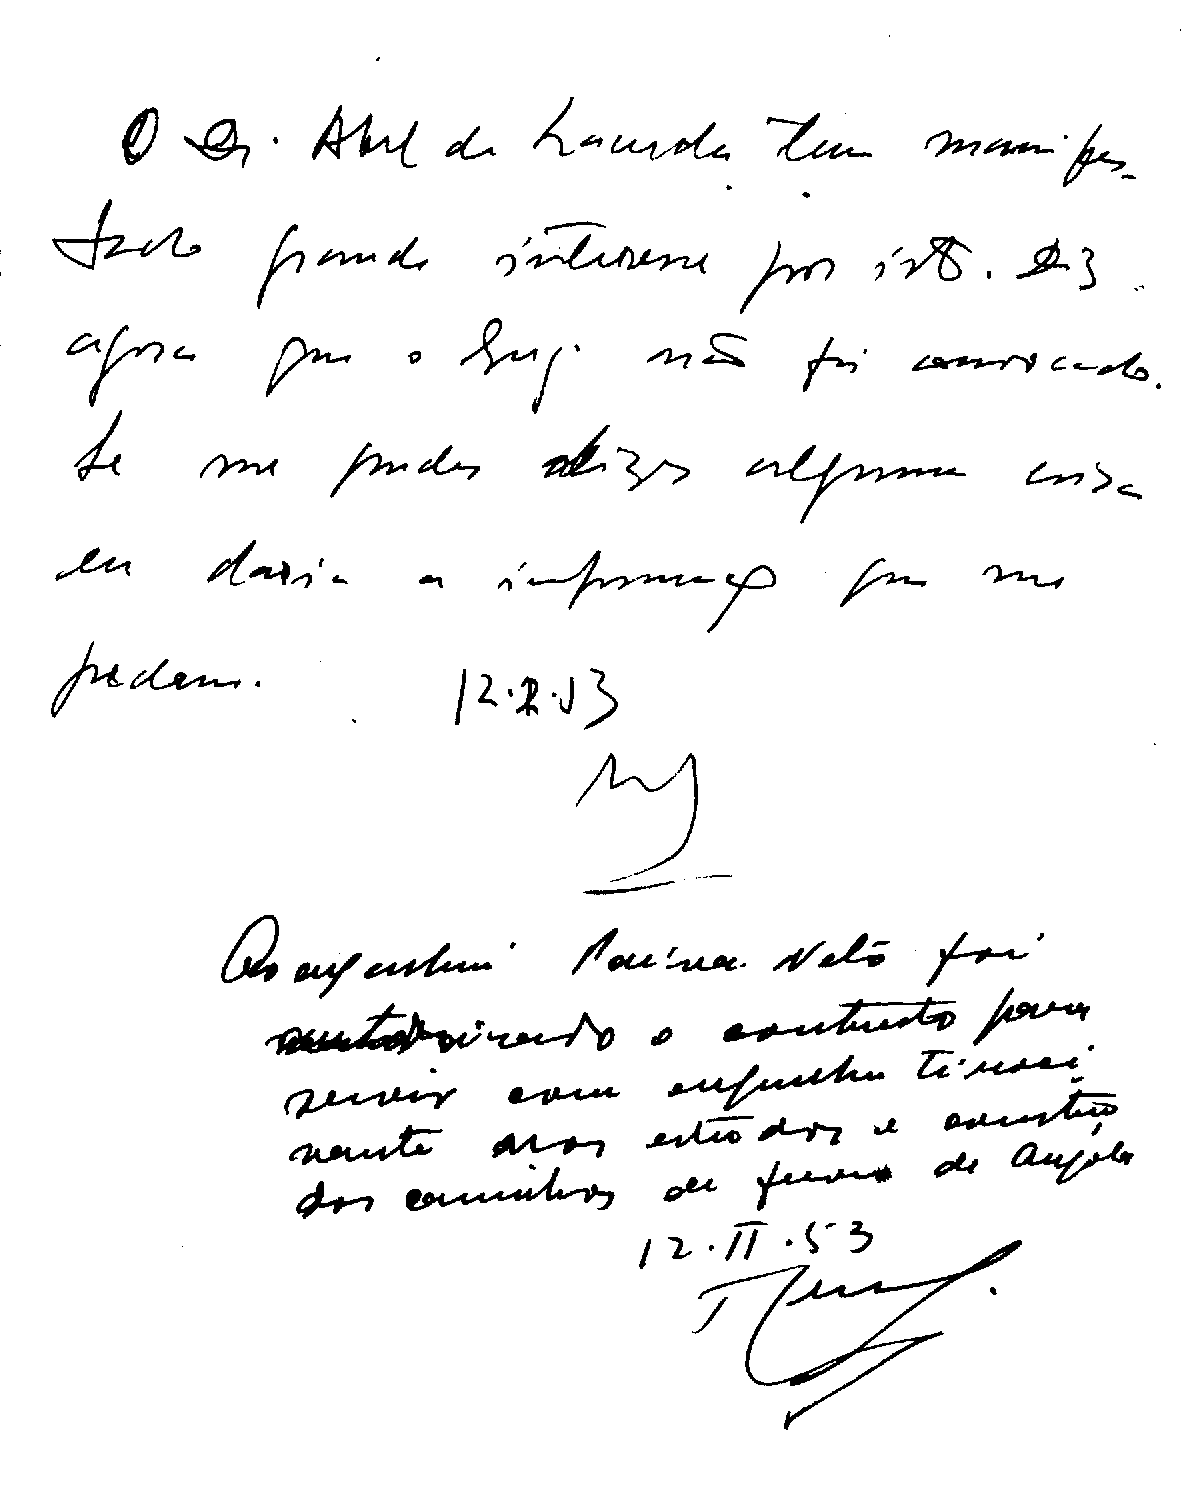 O Dr. Abel de Lacerda tem manifes-
tado grande interesse por isto. Diz
agora que o Eng. não foi convocado.
Se me pudes dizer alguma coisa
eu daria a informação que me
pedem. 12.2.53
Ao engenheiro Neto foi
enviado o contrato para
servir com engenheiro tiroci-
nante nos estudos e constrç
dos caminhos de ferro de Angola
12.II.53